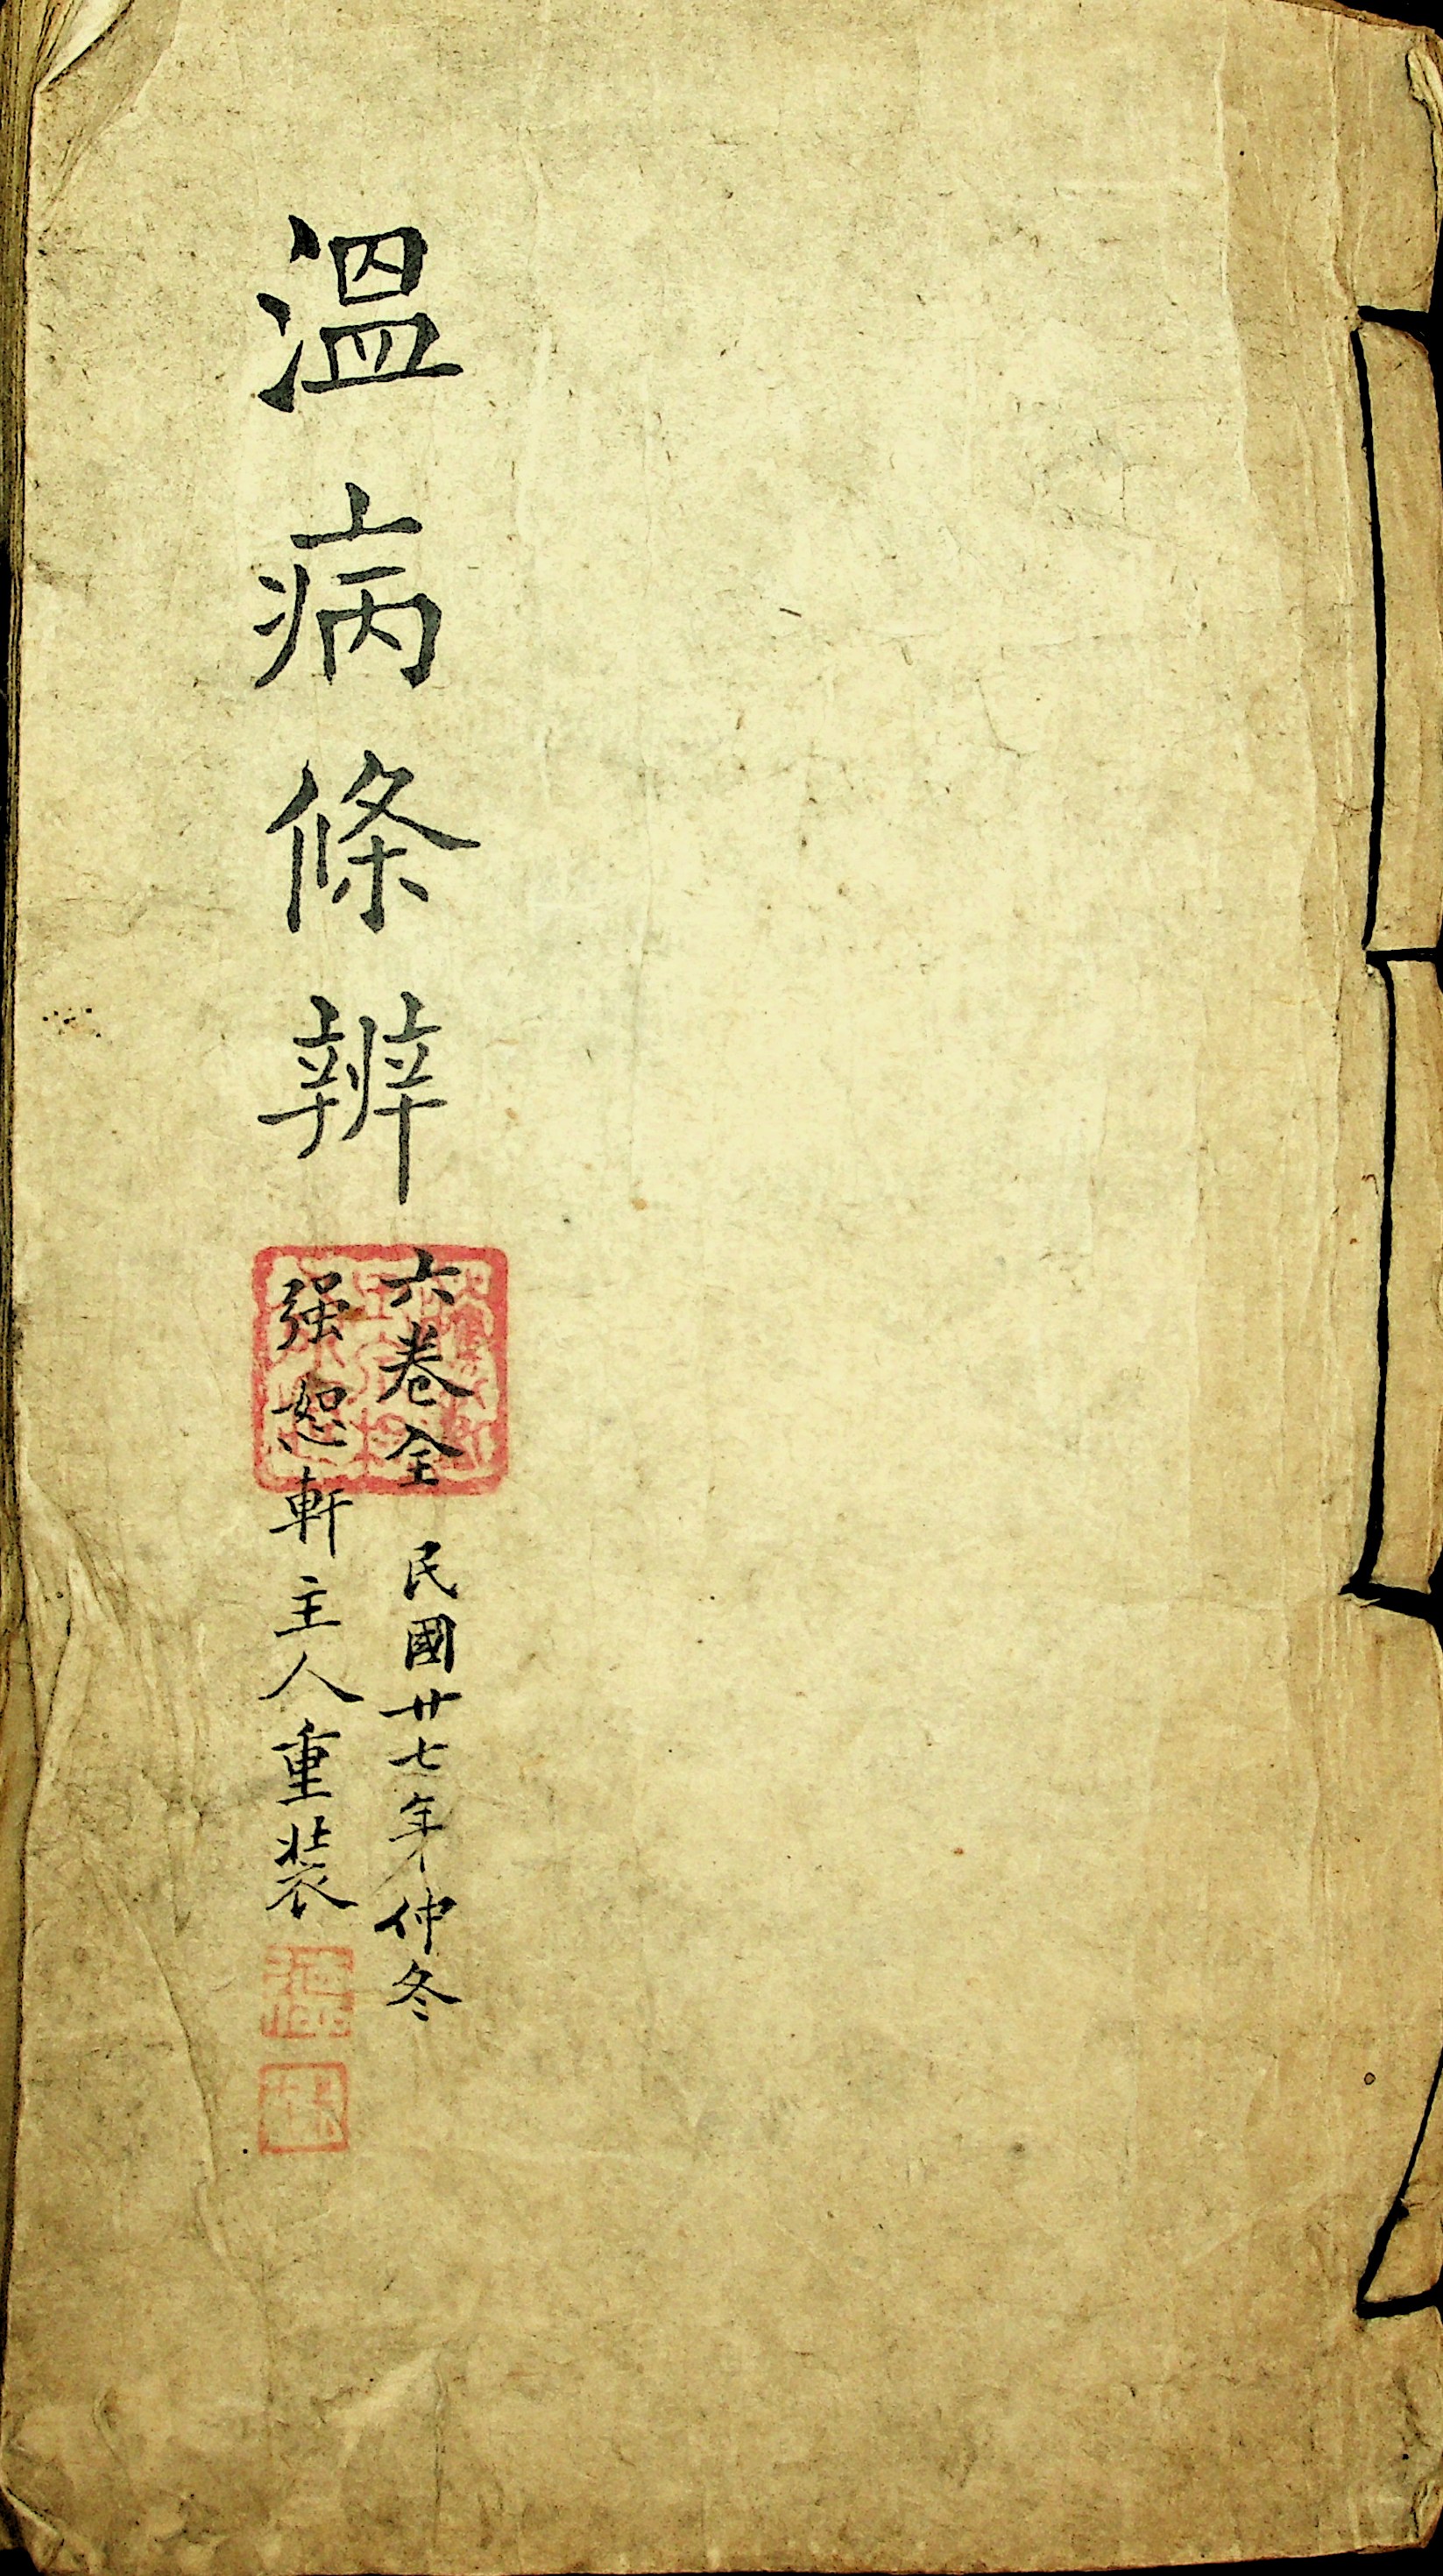 溫病條辨
六卷全 民國廿七年仲冬
强恕軒主人重裝